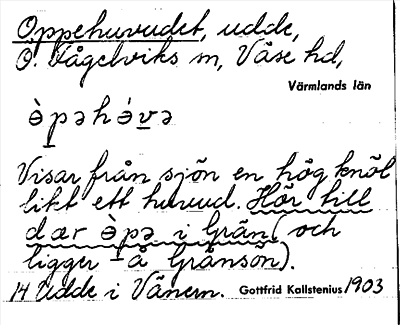 Oppehuvudet, udde,
Ö. Fågelviks sn, Väse hd,
Värmlands län
ə̀pəhə́və
Visar från sjön en hög knöl
likt ett huvud. Hör till
dær ə̀pə i Grän (och
ligger å Gränsön).
14 Udde i Vänern. Gottfrid Kallstenius 1903